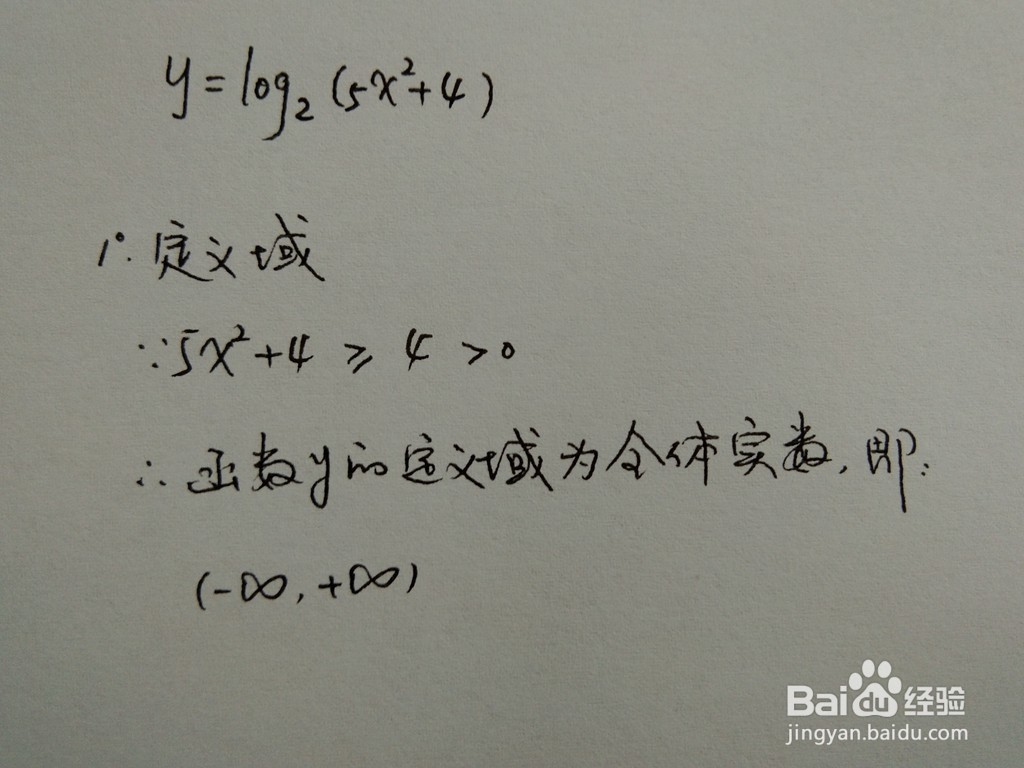 y=log₂(5x²+4)
1°. 定义域
∵5x²+4 ≥ 4 >0
∴ 函数y的定义域为全体实数,即:
(-∞,+∞)
Bai du 经验
jingyan.baidu.com